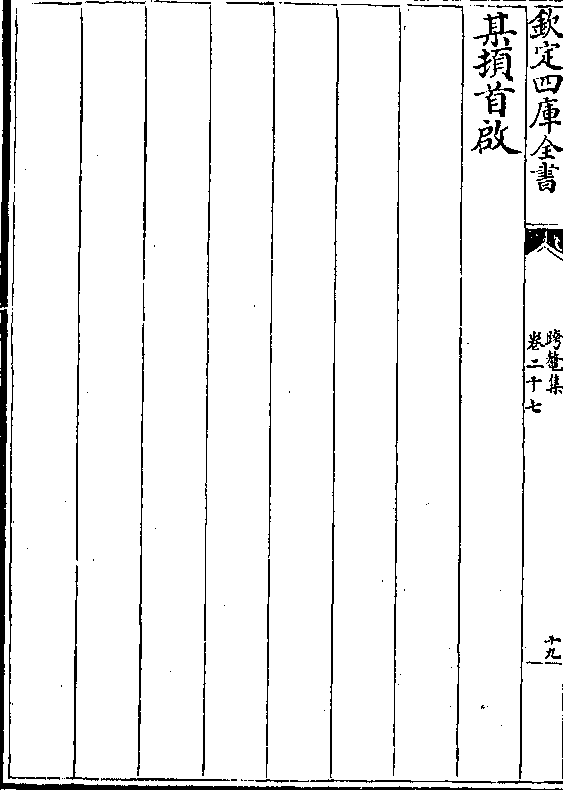 欽定四庫全書
跨鼇集
卷二十七
十九
某頓首啟